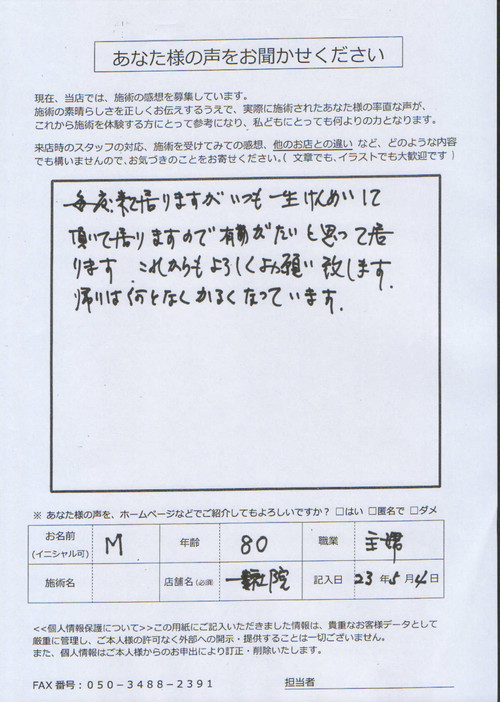 あなた様の声をお聞かせください
現在、当店では、施術の感想を募集しています。
施術の素晴らしさを正しくお伝えするうえで、実際に施術されたあなた様の率直な声が、
これから施術を体験する方にとって参考になり、私どもにとっても何よりの力となります。
来店時のスタッフの対応、施術を受けてみての感想、他のお店との違い など、どのような内容
でも構いませんので、お気づきのことをお寄せください。( 文章でも、イラストでも大歓迎です )
毎度来て居りますが いつも 一生けんめいして
頂いて居りますので 有難がたいと思って居
ります これからもよろしくお願い致します.
帰りは何となくかるくなっています.
※ あなた様の声を、ホームページなどでご紹介してもよろしいですか? □はい □匿名で □ダメ
お名前 (イニシャル可) M 年齢 80 職業 主婦
施術名 店舗名 (必須) 院 記入日 23 年 5 月 4 日
<<個人情報保護について>> この用紙にご記入いただきました情報は、貴重なお客様データとして
厳重に管理し、ご本人様の許可なく外部への開示・提供することは一切ございません。
また、個人情報はご本人様からのお申出により訂正・削除いたします。
FAX 番号：050－3488－2391 担当者